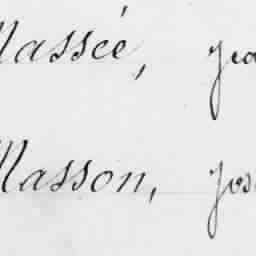 Massée, Jea
Masson, Jos